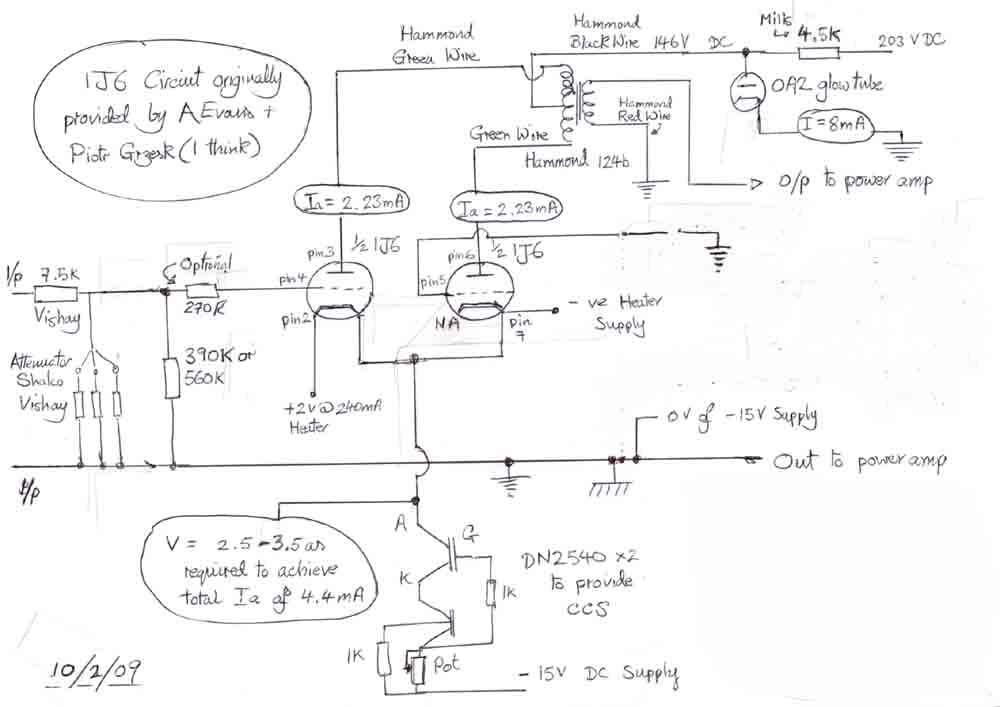 1J6 Circuit originally
provided by A Evans +
Piotr Grzesk (I think)
Hammond
Green Wire
Hammond
Black Wire 146V DC
Mills
4.5K
203 V DC
OA2 glow tube
I = 8mA
Hammond
Red Wire
Green Wire
Hammond 124b
O/p to power amp
Ia = 2.23mA
Ia = 2.23mA
pin3
1/2 1J6
pin6
1/2 1J6
I/p
7.5K
Vishay
Optional
270R
pin4
pin2
pin5
NA
pin
7
- ve Heater
Supply
Attenuator
Shalco
Vishay
390K or
560K
+2V @ 240mA
Heater
0V of -15V Supply
Out to power amp
I/p
V = 2.5 - 3.5 as
required to achieve
total Ia of 4.4mA
A
G
K
1K
DN2540 x2
to provide
CCS
1K
Pot
- 15V DC Supply
10/2/09